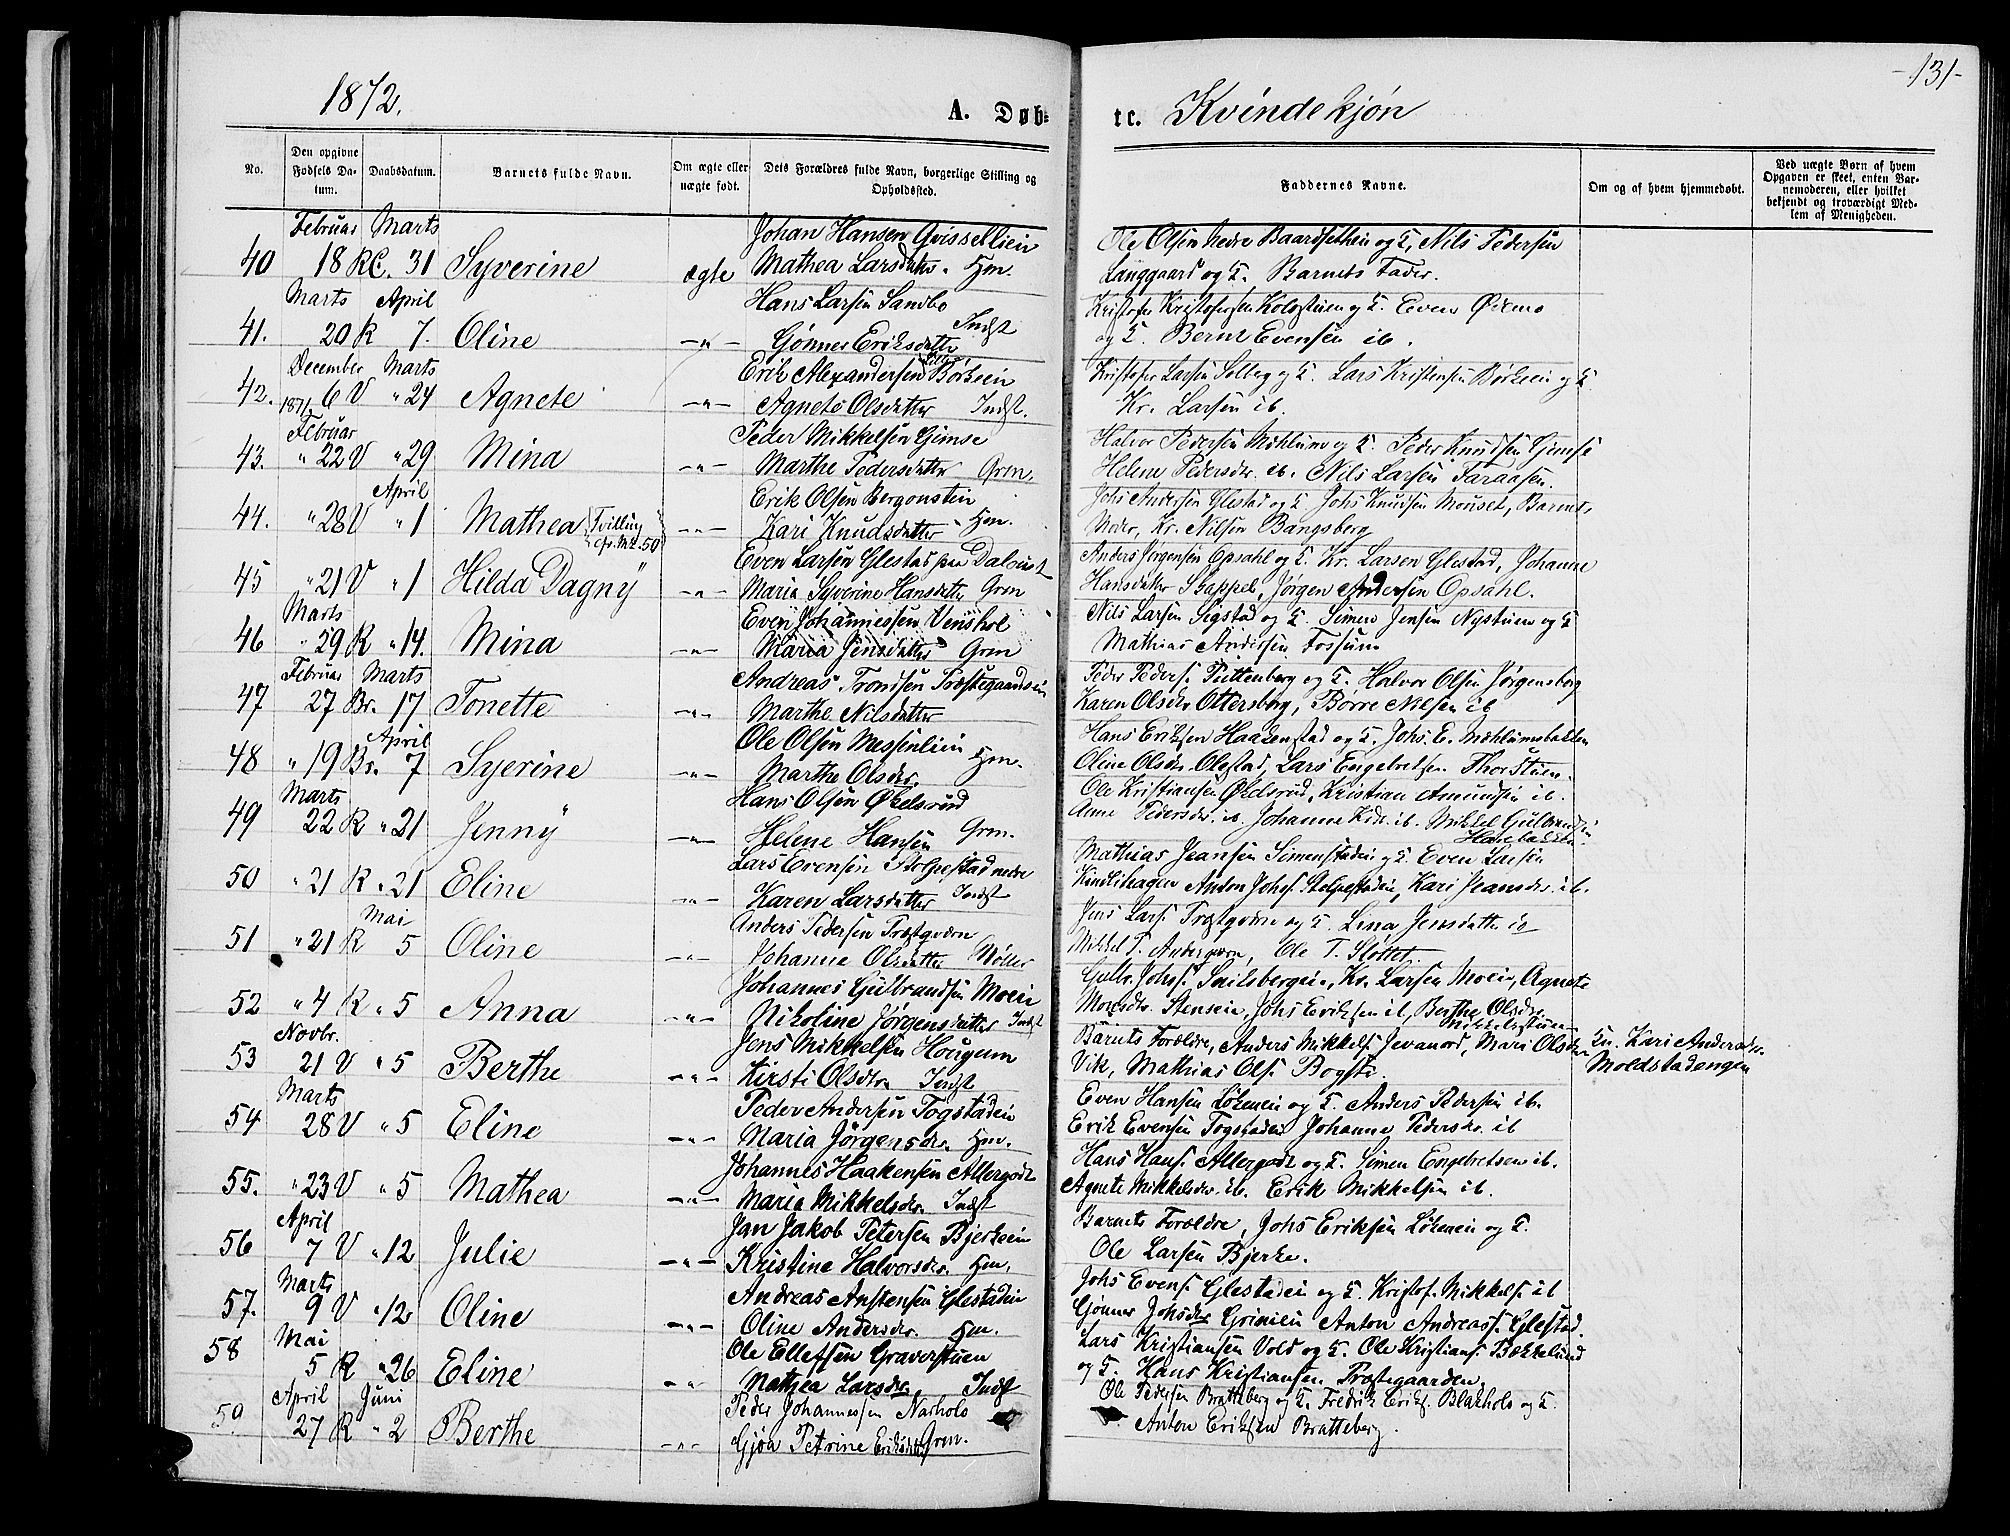 1872.
A. Døb=
te. Kvindekjøn
-131-
No.
Den opgivne Fødsels Da-tum.
Daabsdatum.
Barnets fulde Navn.
Om ægte eller uægte født.
Dets Forældres fulde Navn, borgerlige Stilling og Opholdssted.
Faddernes Navne.
Om og af hvem hjemmedøbt.
Ved uægte Børn af hvem Opgaven er skeet, enten Bar-nemoderen, eller hvilket bekjendt og troværdigt Med-lem af Menigheden.
Februar Marts Johan Hansen
40 18 RC. 31 Syverine ægte Mathea Larsdatr. Hm.
Ole Olsen Nedre Baardsethein og F, Nils Pedersen
Langgaard og F. Barnets Fader.
Marts April Hans Larsen Sandbo
41. 20 R 7. Oline -"- Gønner Eriksdatter Indst
og F. Bernt Evensen ib.
December Marts Erik Alexandersen Børkeein
42. 1871 6 V " 24 Agnete -"- Agnete Olsdatter Indst.
Kristofer Larsen Solberg og F. Lars Kristensen Børkeein og F.
Kr. Larsen ib.
Februar Peder Mikkelsen Gjemse
43. " 22 V " 29 Mina -"- Marthe Pedersdatter Grm.
Halvor Pedersen Mæhlum og F. Peder Knudsen Gjemse
Helene Pedersdr. ib. Nils Larsen Faraasen.
April Erik Olsen Bergonstein
44. " 28 V " 1 Mathea {Tvilling cfr. No. 50} -"- Kari Knudsdatter Hm.
Johs Andersen Glestad og F Johs Knudsen Mouset, Barnets
Moder, Kr. Nilsen Bangsberg
Even Larsen Glestad paa Dalquist
45 " 21 V " 1 Hilda Dagny -"- Maria Syverine Hansdatter Grm
Anders Jørgensen Opsahl og F. Kr. Larsen Glestad, Johanne
Hansdatter Skappel, Jørgen Andersen Opsahl.
Marts Even Johannessen Venskol
46 " 29 R " 14. Mina -"- Maria Jensdatter Grm
Nils Larsen Sigstad og F. Simen Jensen Nystuen og F
Mathias Andersen Fossum
Februar Marts Andreas Trondsen Præstegaardsein
47 27 Br. 17 Tonette -"- Marthe Nilsdatter
Peder Peders. Puttenberg og F. Halvor Olsen Jørgensborg
Karen Olsdr Ottersberg, Børre Nilsen ib
April Ole Olsen Messenlien
48 " 19 Br. 7 Syerine -"- Marthe Olsdr. Hm.
Hans Eriksen Haakenstad og F. Johs. E. Mæhlumsbakken
Oline Olsdr. Olestad, Lars Engebretsen Thorstuen.
Marts Hans Olsen Økelsrud
49 22 R " 21 Jenny -"- Helene Hansen Grm.
Ole Kristiansen Økelsrud, Kristian Amundsen ib.
Anne Pedersdr. ib. Johanne ib. Mikkel Gulbrandsen
Lars Evensen Stolpestad nedre
50 " 21 R " 21 Eline -"- Karen Larsdatter Indst
Mathias Jensen Simenstadein og F. Even Larsen
Kindlihagen Anton Johs. Stolpestadein, Kari Jensdr. ib.
Mai Anders Pedersen Præstqværn
51 " 21 R 5 Oline -"- Johanne Olsdatter Møller
Jens Lars. Præstqværn og F. Lina Jensdatter ib
Mikkel P. Anderqværn, Ole T. Slottet.
Johannes Gulbrandsen Moein
52 " 4 R " 5 Anna -"- Nikoline Jørgensdatter Indst
Gulbr. Johs. Snilsbergein, Kr. Larsen Moein, Agnete
Monsdr. Stensein, Johs Eriksen ib, Berthe Olsdr.
Novbr. Jens Mikkelsen Hougum
53 21 V " 5 Berthe -"- Kirsti Olsdtr Indst
Barnets Forældre, Anders Mikkels. Jevanord, Mari Olsdatter
Vik, Mathias Ols. Bogsti.
Kari Andersdr. Moldstadengen
Marts Peder Andersen Togstadein
54 28 V " 5 Eline -"- Maria Jørgensdr. Hm.
Even Hansen Løkenein og F. Anders Pedersen ib.
Erik Evensen Togstadein Johanne Pedersdr. ib
Johannes Haakensen Allergodt
55. " 23 V " 5 Mathea -"- Maria Mikkelsdr. Indst
Hans Hans. Allergodt og F. Simen Engebretsen ib.
Agnete Mikkelsdr. ib. Erik Mikkelsen ib.
April Jan Jakob Petersen Bjerkein
56 7 V " 12 Julie -"- Kristine Halvorsdr. Hm.
Barnets Forældre, Johs Eriksen Løkenein og F.
Ole Larsen Bjerke.
Marts Andreas Anstensen Glestadein
57. 9 V " 12 Oline -"- Oline Andersdr. Hm.
Johs Evens. Glestadein og F. Kristof. Mikkels. ib
Gønner Johsdr Anton Andreass. Glestad.
Mai Ole Ellefsen Graverstuen
58 5 R " 26 Eline " " Mathea Larsdr. Indst
Lars Kristiansen Vold og F. Ole Kristians. Bækkelund
og F. Hans Kristiansen Præstegaarden.
April Juni Peder Johannessen Narholo
59. 27 R " 2 Berthe -"- Gjøa Petrine Eriksdatter Grm.
Ole Pedersen Bratteberg og F. Fredrik Eriks. Blakholo og F.
Anton Eriksen Bratteberg.